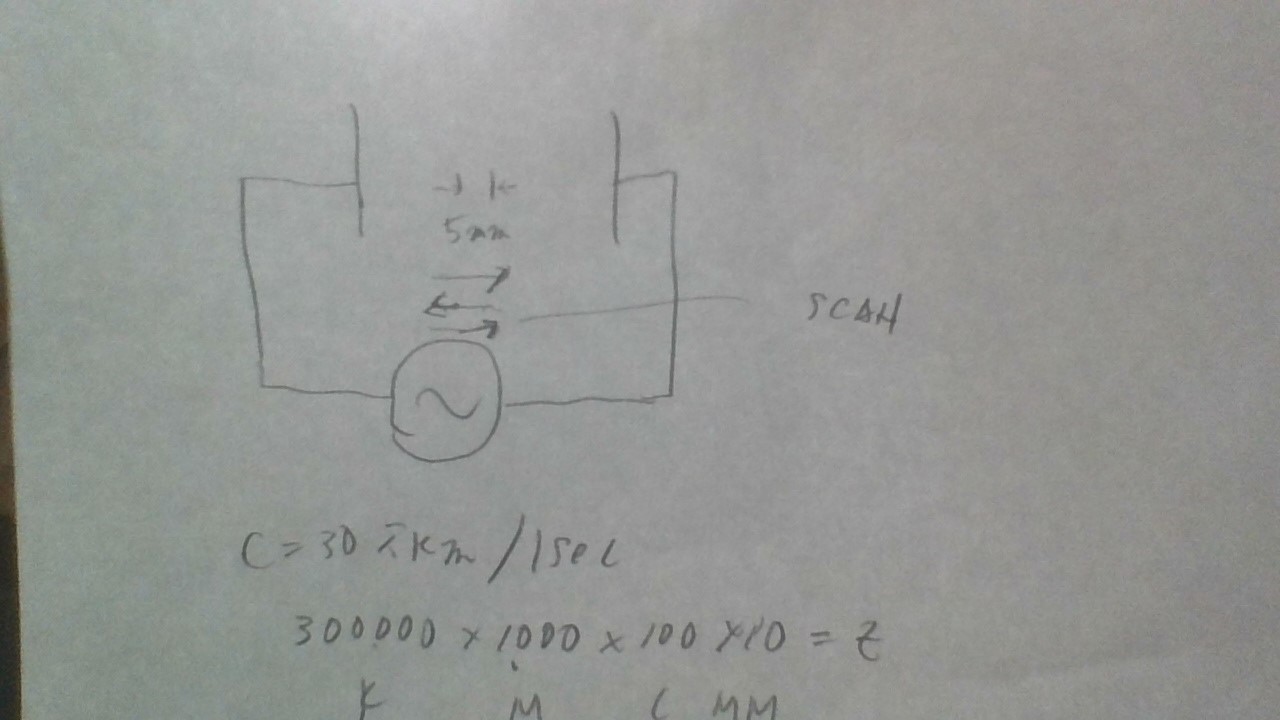 5mm
SCAN
C=30万Km/1sec
300000 x 1000 x 100 x10 = Z
K M C MM